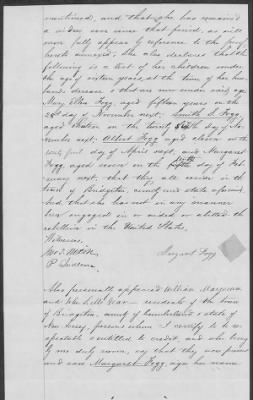 mentioned, and that she has remained
a widow ever since that period, as will
more fully appear by reference to the proof
hereto annexed. She also declares that the
following is a list of her children under
the age of sixteen years, at the time of her hus-
band's decease & that are now under such age
Mary Ellen Fogg, aged fifteen years on the
day of November next, Smith D. Fogg,
aged thirteen on the twenty day of
next; Albert Fogg aged eleven on the
first day of April next, and Margaret
Fogg, aged seven on the day of Feb-
ruary next, that they all reside in the
town of Bridgeton, county and state aforesaid,
And, that she has not in any manner
been engaged in or aided or abetted the
rebellion in the United States,
Witnesses,
Margaret Fogg
Also personally appeared William
and War residents of the town
of Bridgeton, county of Cumberland & state of
New Jersey, persons whom I certify to be re-
spectable & entitled to credit, and who being
by me duly sworn, say that they were present
and saw Margaret Fogg sign her name